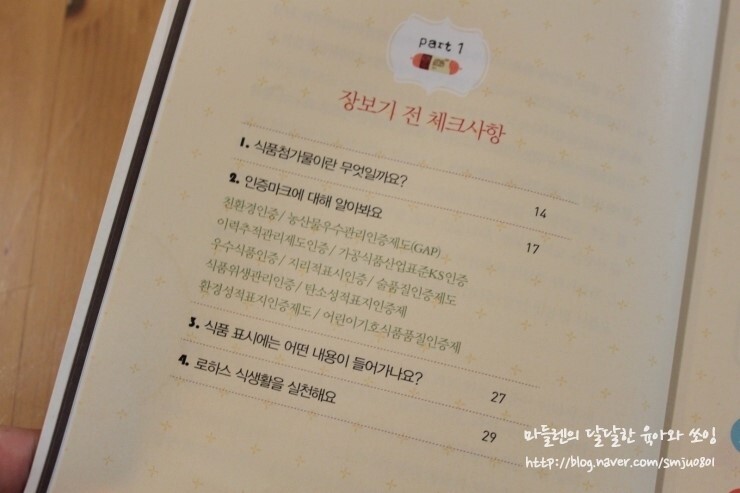 part 1
장보기 전 체크사항
1. 식품첨가물이란 무엇일까요? 14
2. 인증마크에 대해 알아봐요 17
친환경인증/ 농산물우수관리인증제도(GAP)
이력추적관리제도인증/ 가공식품산업표준KS인증
우수식품인증/ 지리적표시인증/ 술품질인증제도
식품위생관리인증/ 탄소성적표지인증제
환경성적표지인증제도/ 어린이기호식품품질인증제
3. 식품 표시에는 어떤 내용이 들어가나요? 27
4. 로하스 식생활을 실천해요 29
마들렌의 달달한 육아와 쏘잉
http://blog.naver.com/smju0801